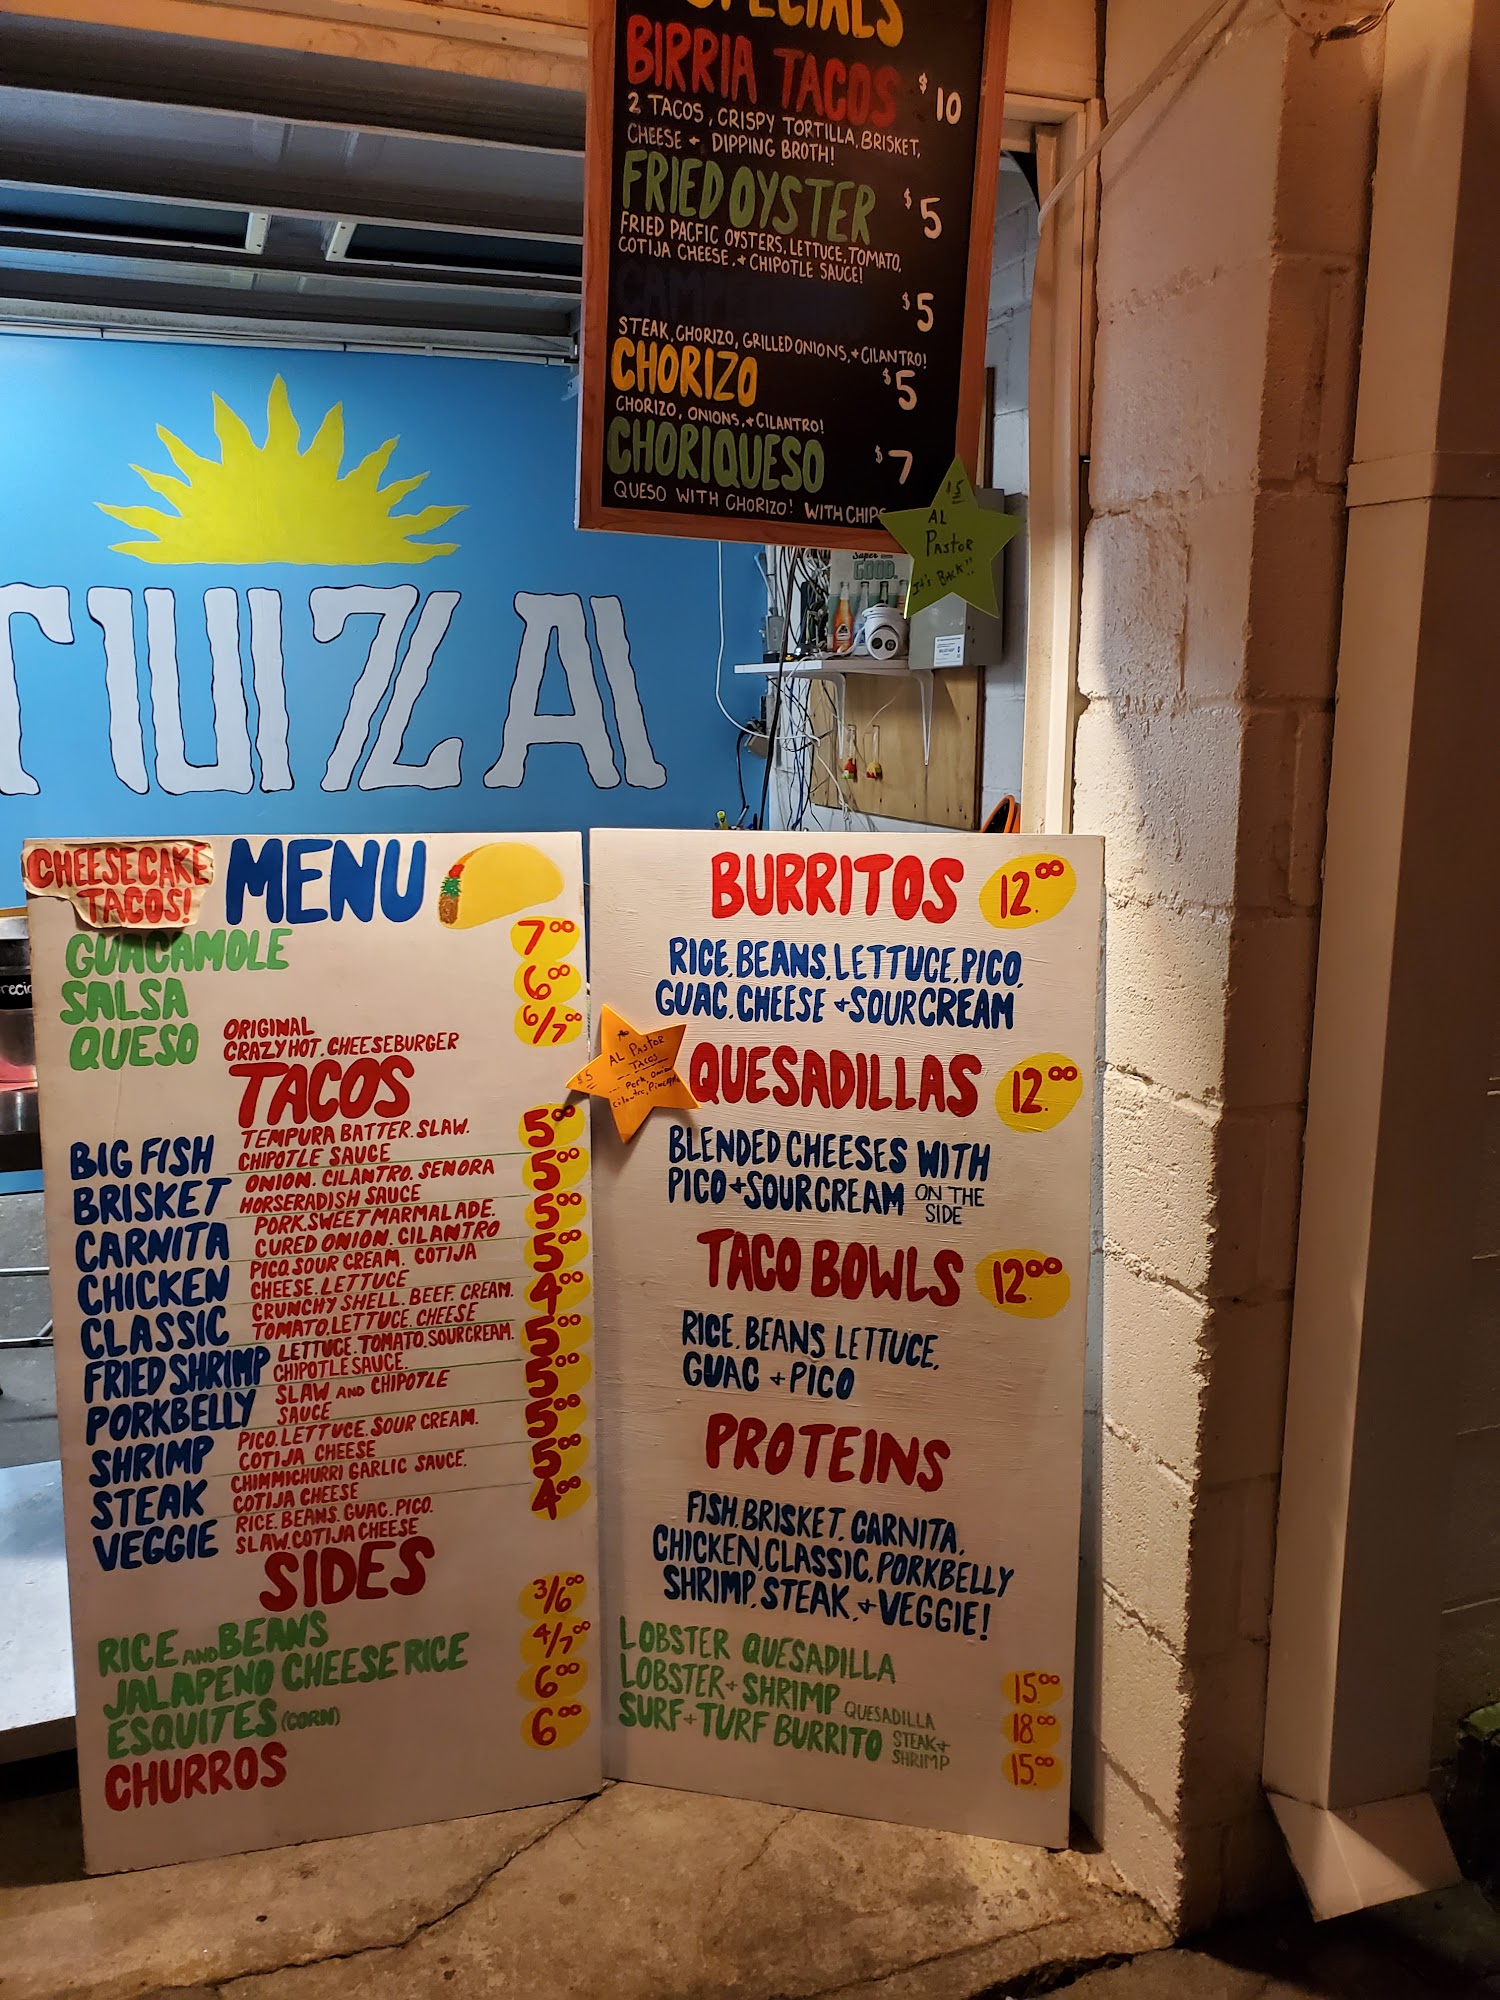 SPECIALS
BIRRIA TACOS $10
2 TACOS, CRISPY TORTILLA, BRISKET,
CHEESE + DIPPING BROTH!
FRIED OYSTER $5
FRIED PACFIC OYSTERS, LETTUCE, TOMATO,
COTIJA CHEESE, + CHIPOTLE SAUCE!
$5
STEAK, CHORIZO, GRILLED ONIONS, + CILANTRO!
CHORIZO $5
CHORIZO, ONIONS, + CILANTRO!
CHORIQUESO $7
QUESO WITH CHORIZO! WITH CHIPS
$5
AL
PASTOR
It's BACK!!
Super
GOOD.
TUZA
CHEESECAKE
TACOS!
MENU
GUACAMOLE 7.00
SALSA 6.00
QUESO ORIGINAL 6/7.00
CRAZY HOT. CHEESEBURGER
TACOS
BIG FISH TEMPURA BATTER. SLAW. 5.00
CHIPOTLE SAUCE
BRISKET ONION. CILANTRO. SENORA 5.00
HORSERADISH SAUCE
CARNITA PORK. SWEET MARMALADE. 5.00
CURED ONION. CILANTRO
CHICKEN PICO. SOUR CREAM. COTIJA 5.00
CHEESE. LETTUCE
CLASSIC CRUNCHY SHELL. BEEF. CREAM. 4.00
TOMATO. LETTUCE. CHEESE
FRIED SHRIMP LETTUCE. TOMATO. SOUR CREAM. 5.00
CHIPOTLE SAUCE.
PORKBELLY SLAW AND CHIPOTLE 5.00
SAUCE
SHRIMP PICO. LETTUCE. SOUR CREAM. 5.00
COTIJA CHEESE
STEAK CHIMMICHURRI GARLIC SAUCE. 5.00
COTIJA CHEESE
VEGGIE RICE. BEANS. GUAC. PICO. 4.00
SLAW. COTIJA CHEESE
SIDES
RICE AND BEANS 3/6.00
JALAPENO CHEESE RICE 4/7.00
ESQUITES (CORN) 6.00
CHURROS 6.00
AL PASTOR
TACOS
$5
Pork, Onion
Cilantro, Pineapple
BURRITOS 12.00
RICE. BEANS. LETTUCE. PICO.
GUAC. CHEESE + SOUR CREAM
QUESADILLAS 12.00
BLENDED CHEESES WITH
PICO + SOUR CREAM ON THE
SIDE
TACO BOWLS 12.00
RICE. BEANS LETTUCE.
GUAC + PICO
PROTEINS
FISH, BRISKET, CARNITA,
CHICKEN, CLASSIC, PORKBELLY
SHRIMP, STEAK, + VEGGIE!
LOBSTER QUESADILLA 15.00
LOBSTER + SHRIMP QUESADILLA 18.00
SURF + TURF BURRITO STEAK + 15.00
SHRIMP